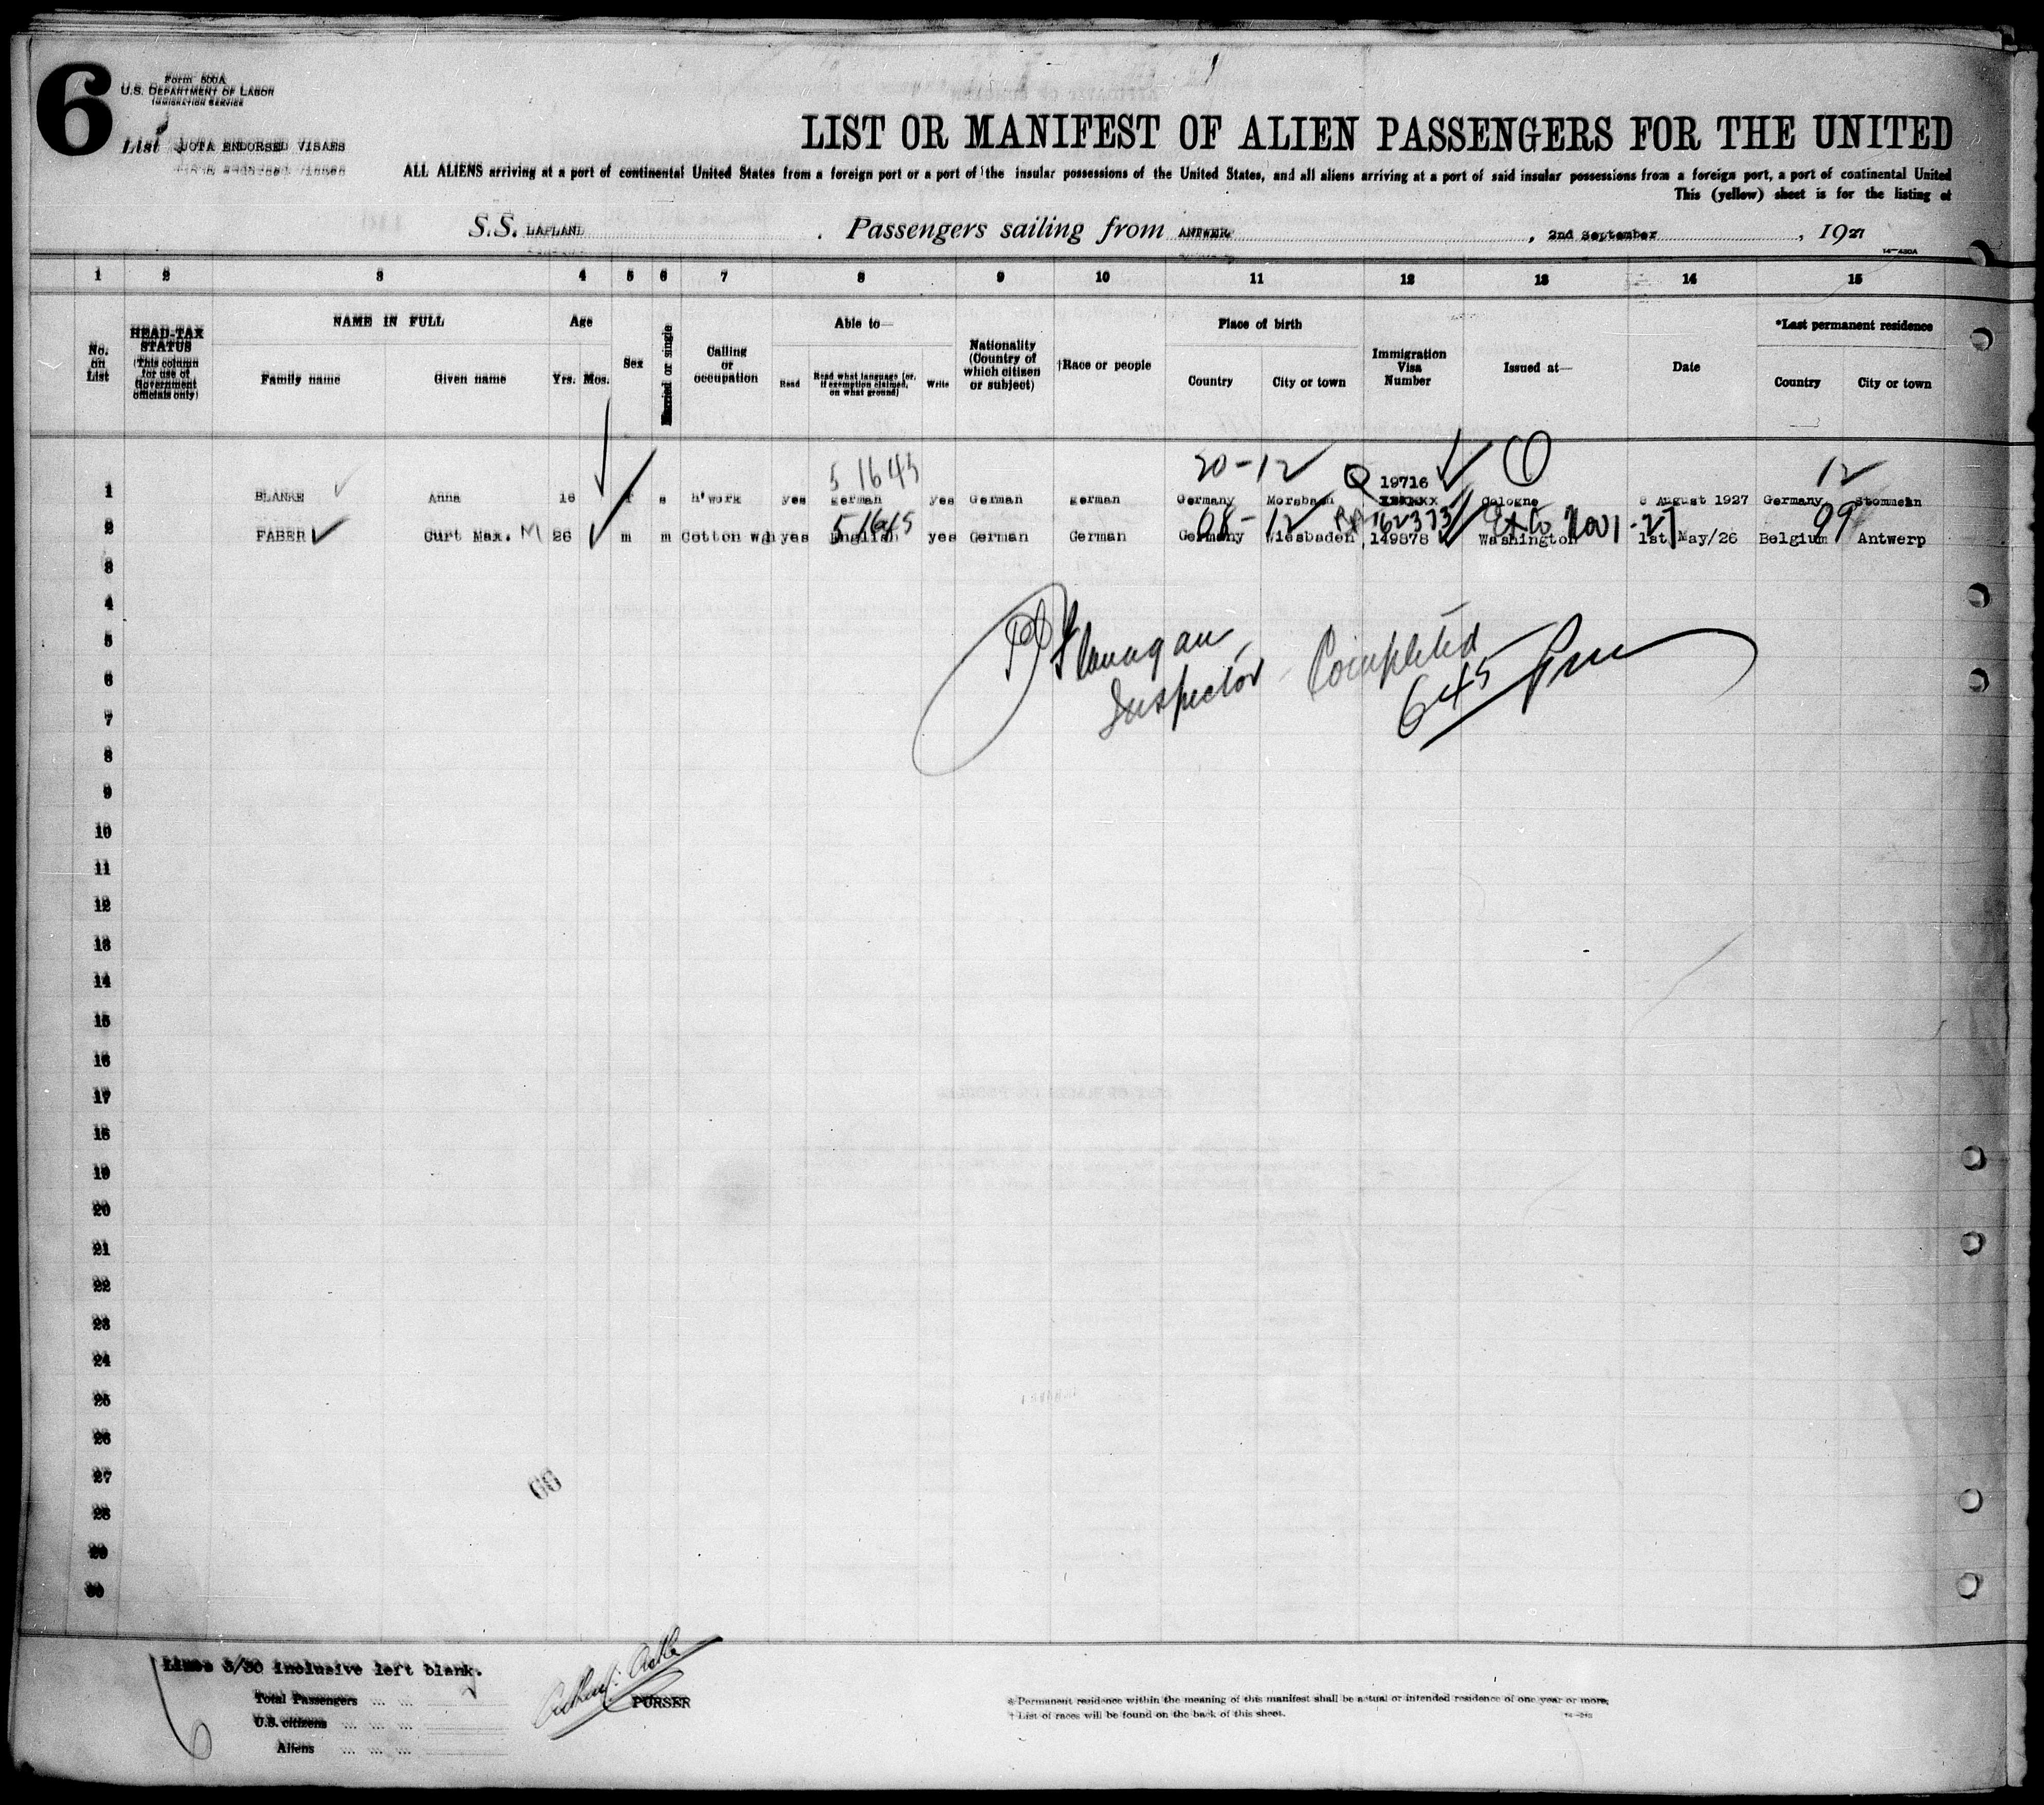 6
Form 500A
U.S. DEPARTMENT OF LABOR
IMMIGRATION SERVICE
List QUOTA ENDORSED VISAES
LIST OR MANIFEST OF ALIEN PASSENGERS FOR THE UNITED
ALL ALIENS arriving at a port of continental United States from a foreign port or a port of the insular possessions of the United States, and all aliens arriving at a port of said insular possessions from a foreign port, a port of continental United
This (yellow) sheet is for the listing of
S.S. LAPLAND. Passengers sailing from ANTWERP, 2nd September, 1927
14-430A
1 2 3 4 5 6 7 8 9 10 11 12 13 14 15
No. on List
HEAD-TAX STATUS (This column for use of Government officials only)
NAME IN FULL
Family name Given name
Age
Yrs. Mos.
Sex
Married or single
Calling or occupation
Able to—
Read Read what language (or, if exemption claimed, on what ground) Write
Nationality (Country of which citizen or subject)
†Race or people
Place of birth
Country City or town
Immigration Visa Number
Issued at—
Date
*Last permanent residence
Country City or town
5 1645 20-12 Q 19716 12
1 BLANKE Anna 18 f s h'work yes german yes German german Germany Morsbach Cologne 8 August 1927 Germany Stommeln
5 1645 08-12 162373 Ext to 2001-27 99
2 FABER Curt Max. M 26 m m Cotton wgh yes English yes German German Germany Wiesbaden 149878 Washington 1st May/26 Belgium Antwerp
3
4
5
6
7
8
9
10
11
12
13
14
15
16
17
18
19
20
21
22
23
24
25
26
27
28
29
30
Flanagan
Inspector Completed
645 pm
60
Lines 3/30 inclusive left blank.
Total Passengers
U.S. citizens
Aliens
PURSER
* Permanent residence within the meaning of this manifest shall be actual or intended residence of one year or more.
† List of races will be found on the back of this sheet.